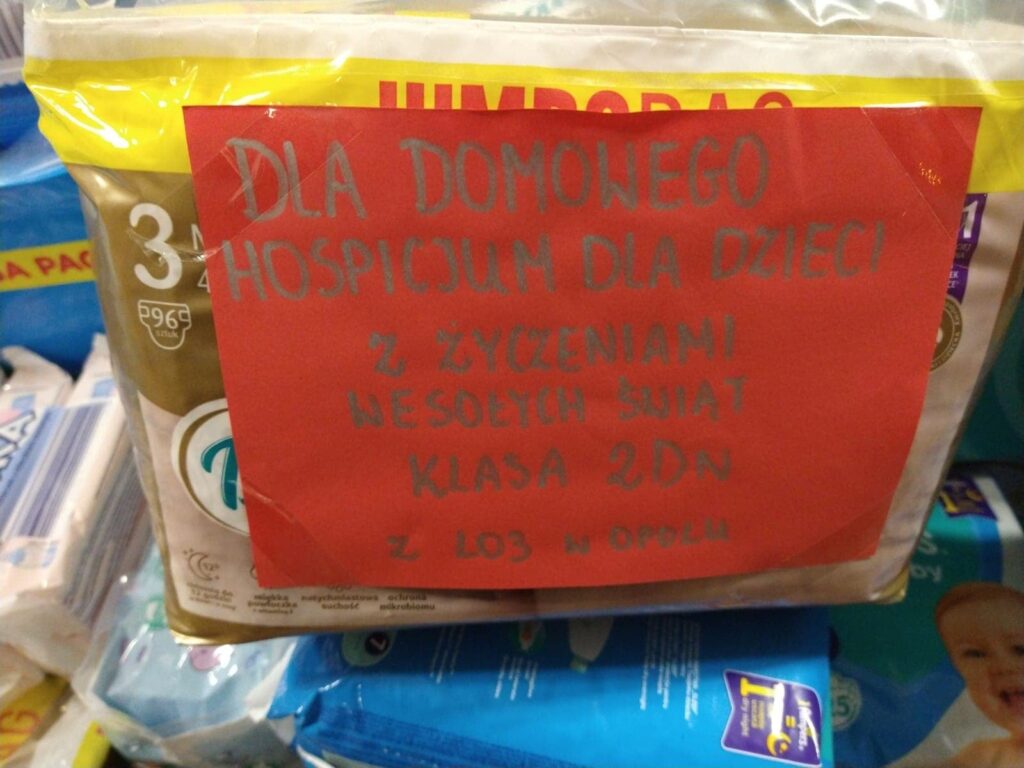 DLA DOMOWEGO
HOSPICJUM DLA DZIECI
Z ŻYCZENIAMI
WESOŁYCH ŚWIĄT
KLASA 2DN
Z LO3 W OPOLU
3
96
sztuk
12h
12 godzin
miękka
powłoczka
natychmiastowa
suchość
ochrona
mikrobiomu